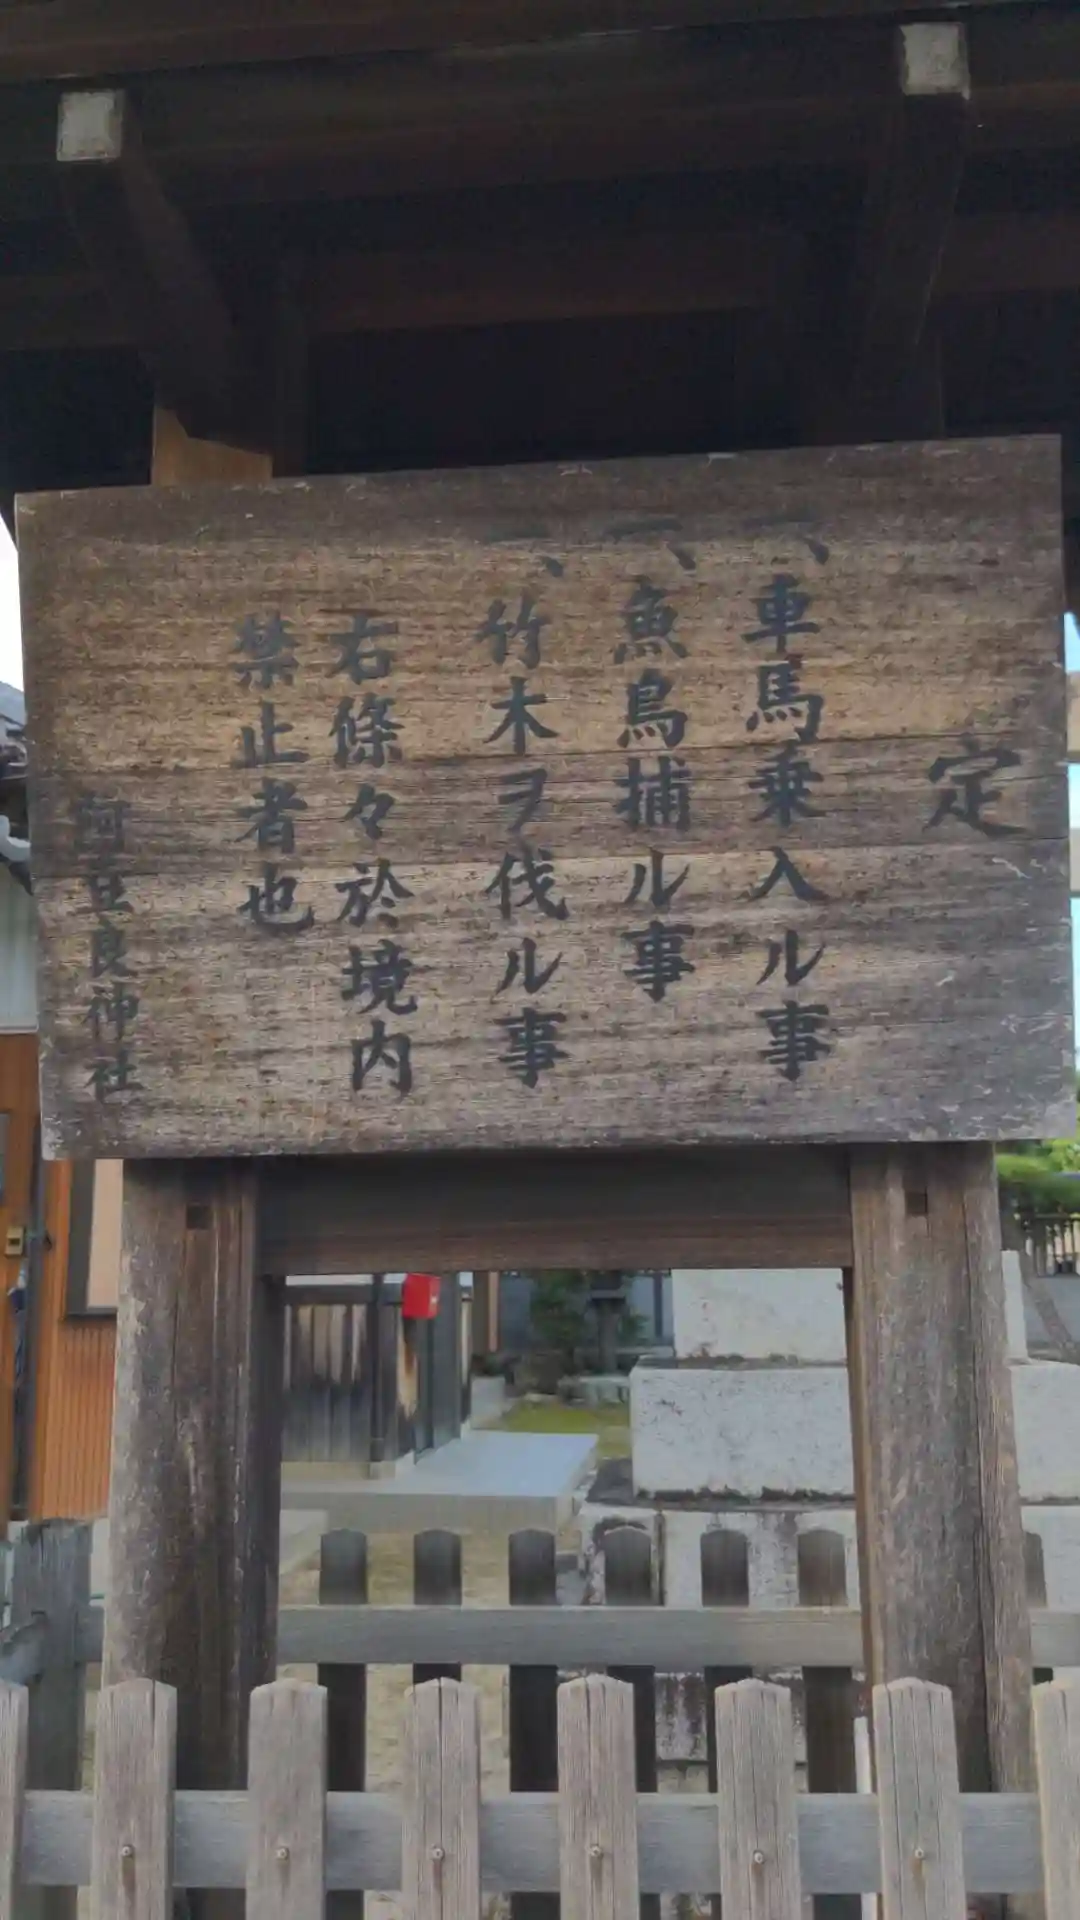 定
一、車馬乗入ル事
一、魚鳥捕ル事
一、竹木ヲ伐ル事
右條々於境内
禁止者也
阿豆良神社